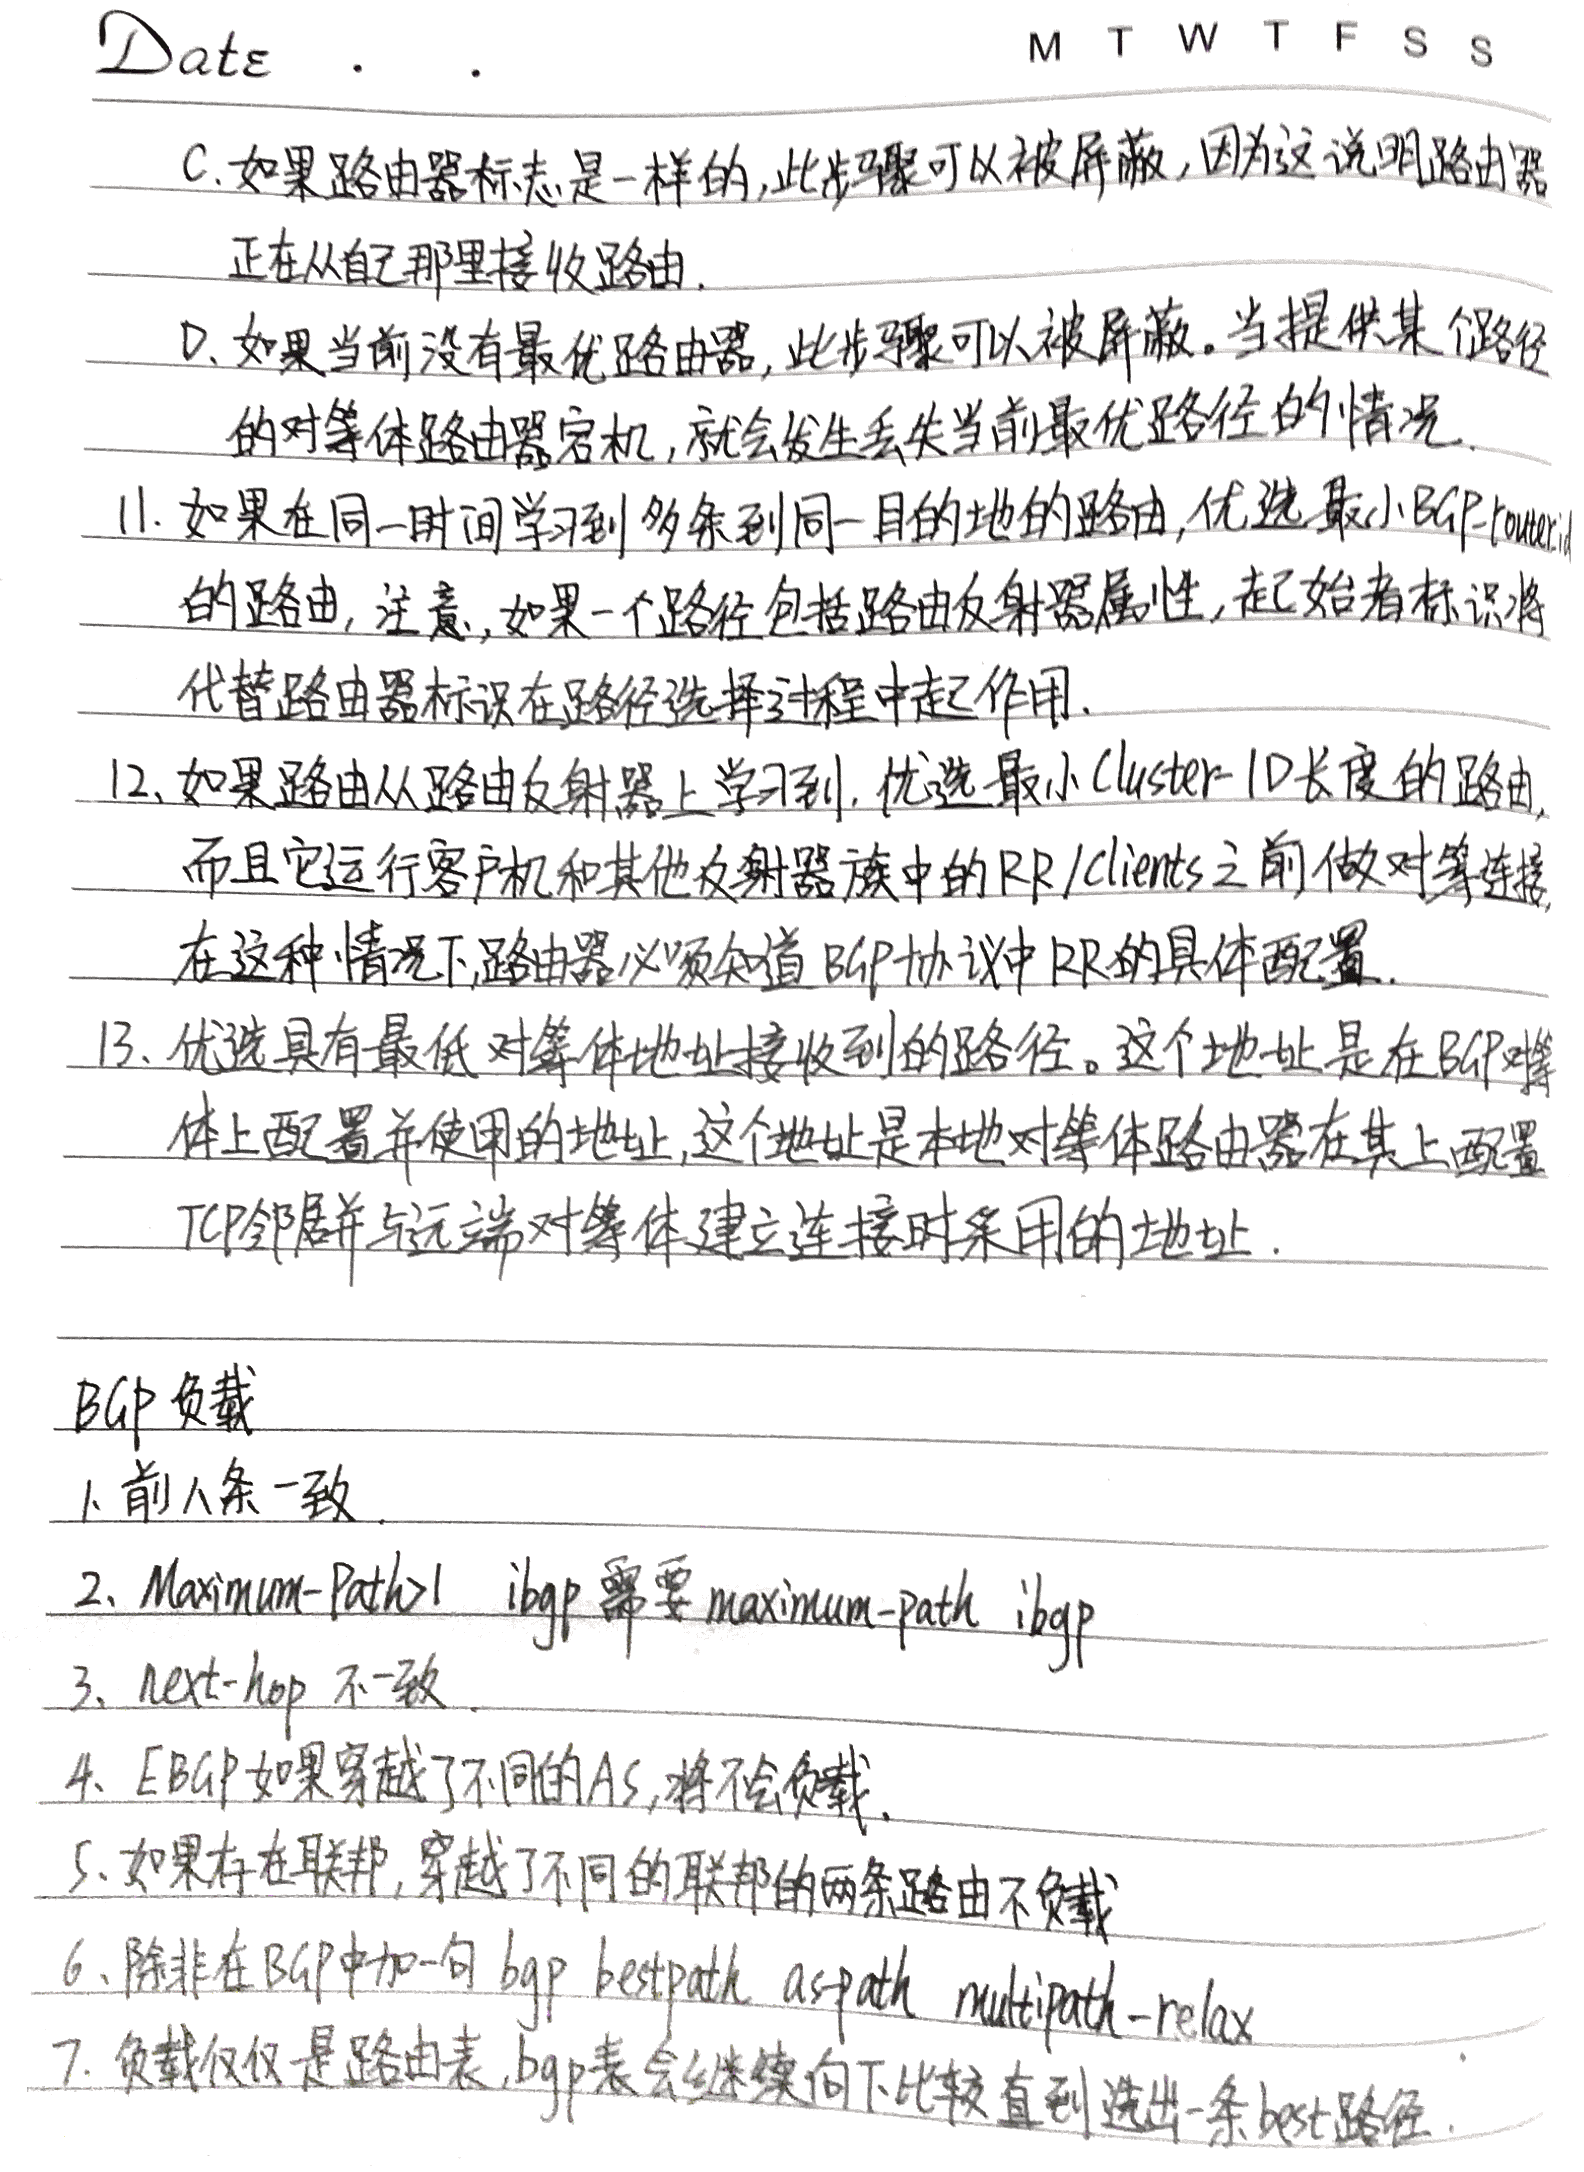 Date . .
M T W T F S S
C. 如果路由器标志是一样的,此步骤可以被屏蔽,因为这说明路由器
正在从自己那里接收路由.
D、如果当前没有最优路由器,此步骤可以被屏蔽。当提供某个路径
的对等体路由器宕机,就会发生丢失当前最优路径的情况.
11. 如果在同一时间学习到多条到同一目的地的路由,优选最小BGP-router-id
的路由,注意,如果一个路径包括路由反射器属性,起始者标识将
代替路由器标识在路径选择过程中起作用.
12、如果路由从路由反射器上学习到.优选最小Cluster-ID长度的路由,
而且它运行客户机和其他反射器族中的RR/Clients之前做对等连接,
在这种情况下,路由器必须知道BGP协议中RR的具体配置.
13、优选具有最低对等体地址接收到的路径。这个地址是在BGP对等
体上配置并使用的地址,这个地址是本地对等体路由器在其上配置
TCP邻居并与远端对等体建立连接时采用的地址.
BGP负载
1、前八条一致.
2、Maximum-Path>1 ibgp需要maximum-path ibgp
3、next-hop 不一致.
4、EBGP如果穿越了不同的AS,将不会负载.
5、如果存在联邦,穿越了不同的联邦的两条路由不负载
6、除非在BGP中加一句 bgp bestpath as-path multipath-relax
7. 负载仅仅是路由表,bgp表会继续向下比较直到选出一条best路径.